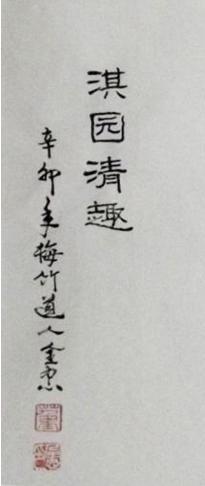 淇园清趣
辛卯年梅竹道人金忠